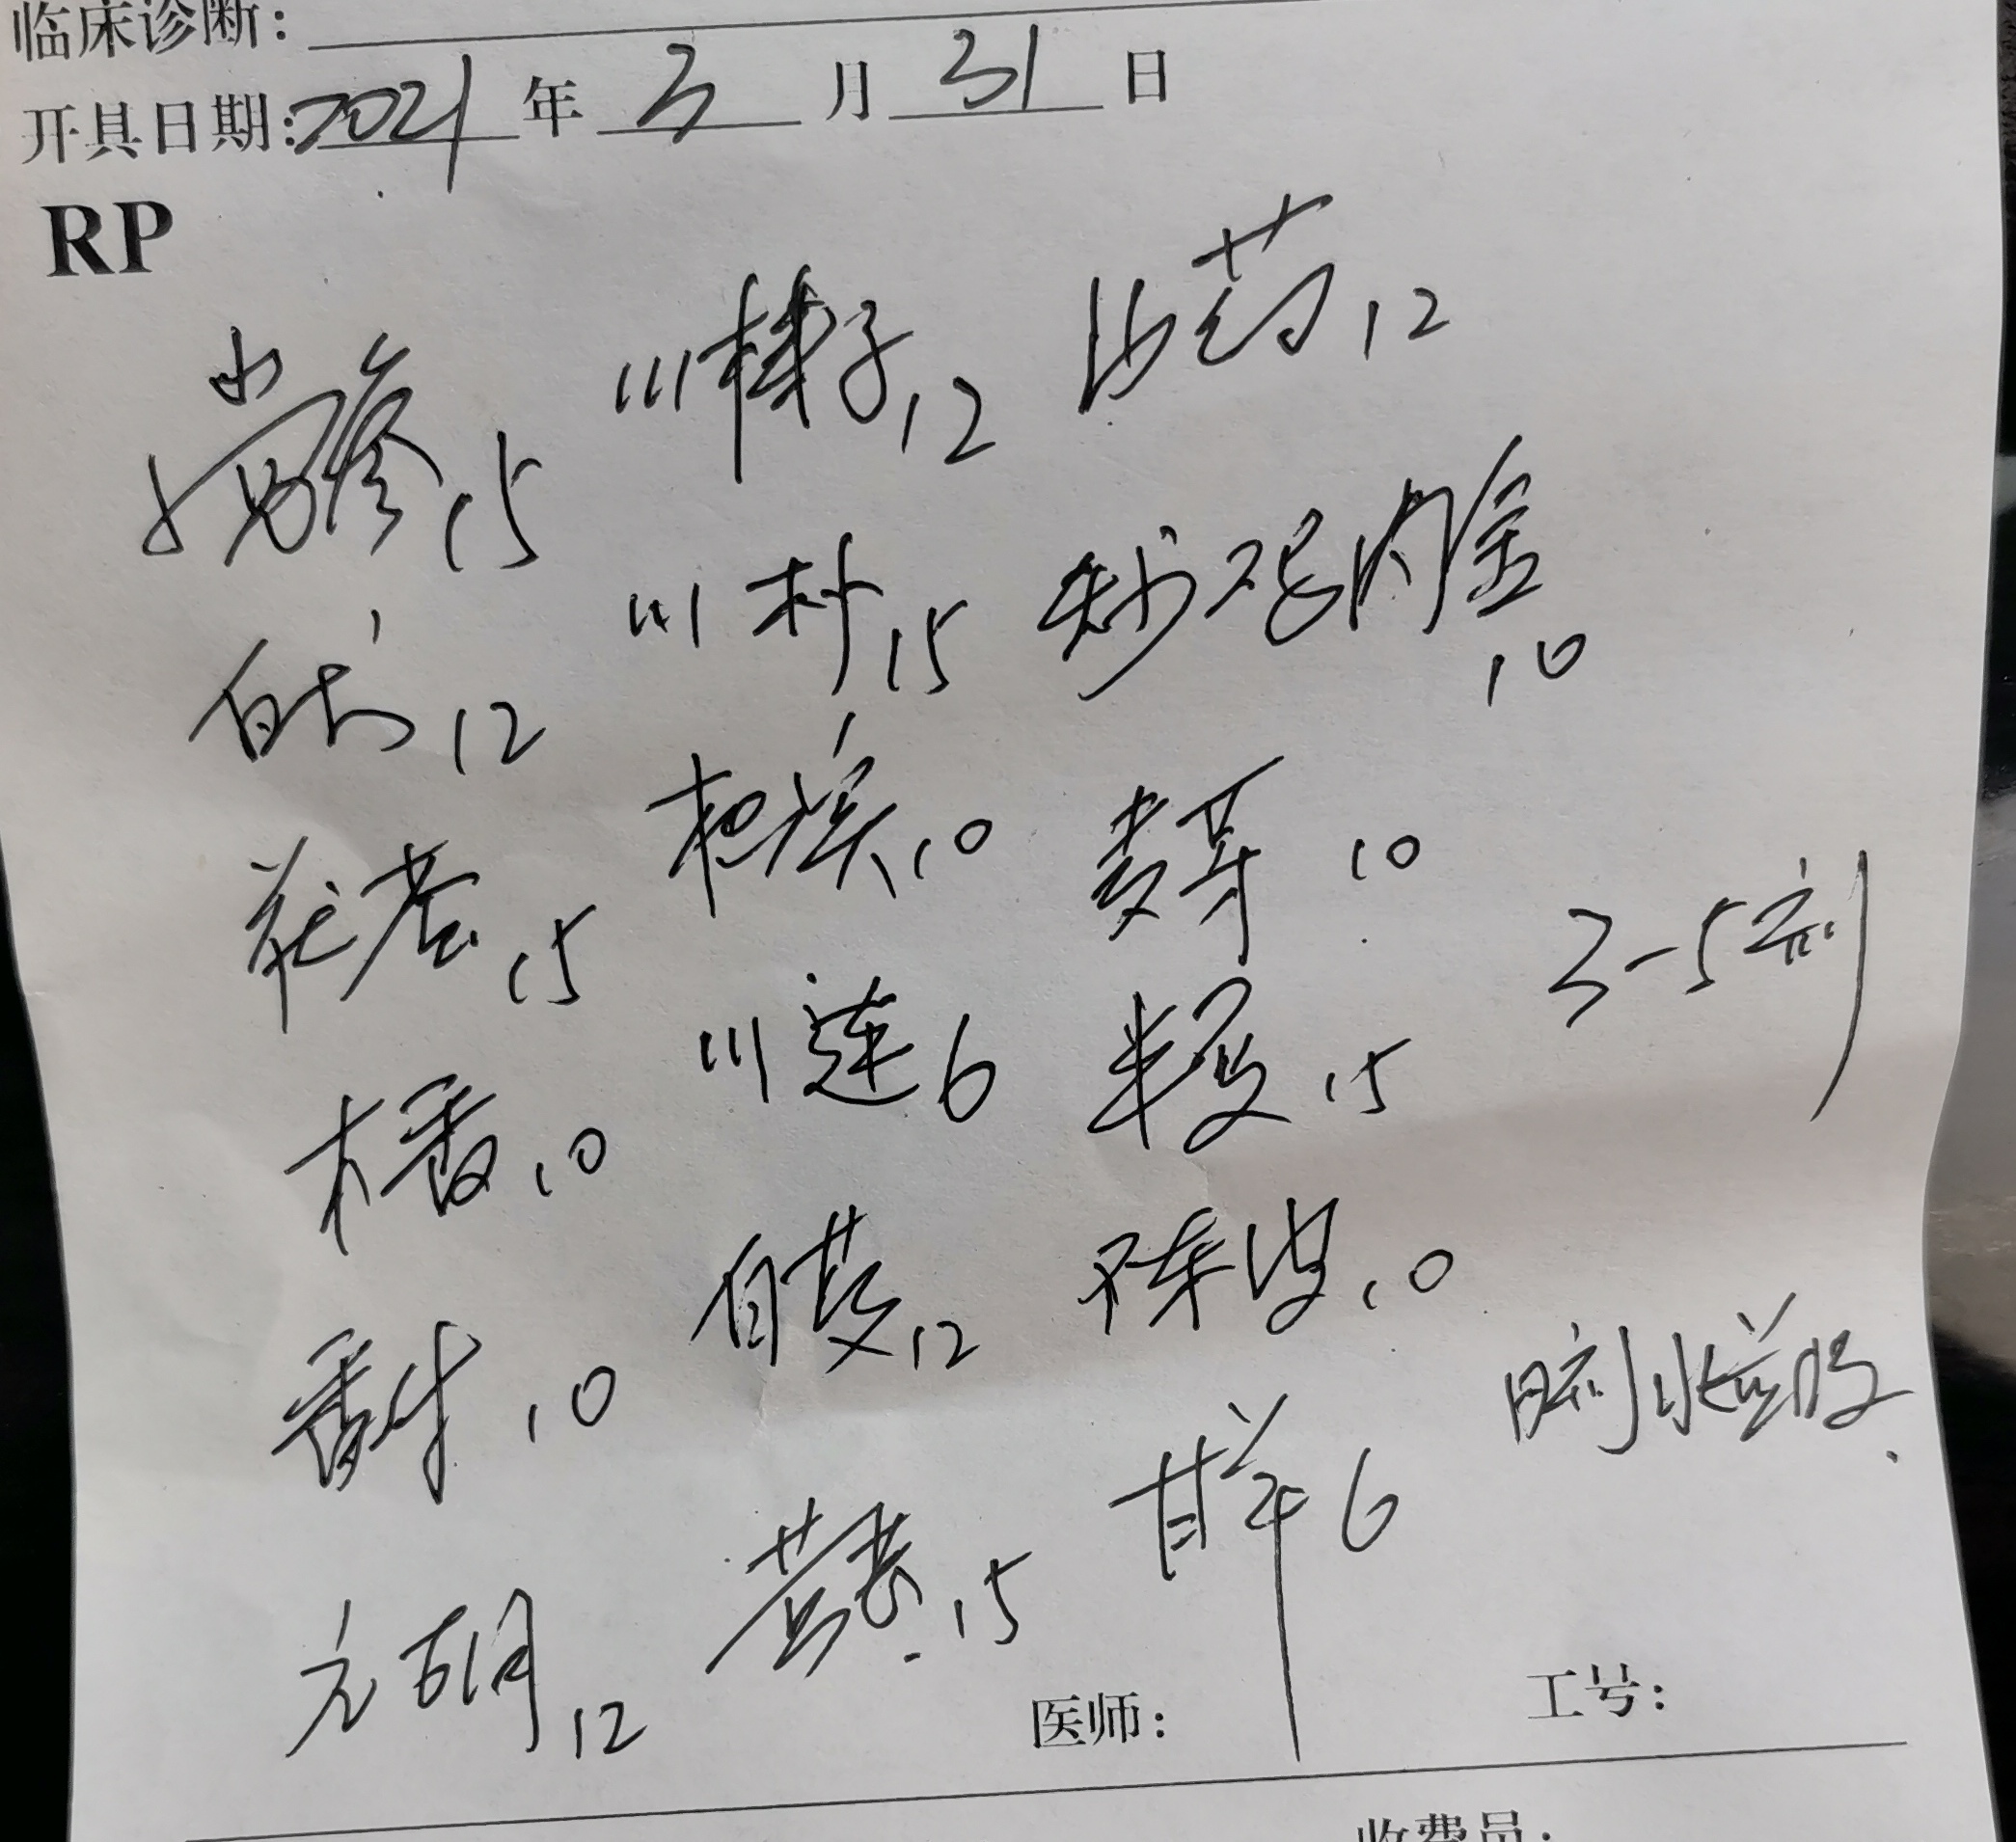 临床诊断:
开具日期:2021年3月31日
RP
党参15 川楝子12 白芍12
白术12 川朴15 炒鸡内金10
茯苓15 枳实10 麦芽10
木香10 川连6 半夏15 3-5剂
香附10 陈皮10
元胡12 12 甘草6 日一剂水煎服.
15
医师: 工号:
收费员: